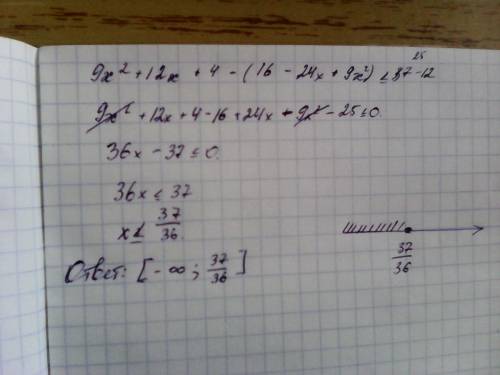 9x² + 12x + 4 - (16 - 24x + 9x²) ≤ 37-12
25
9x² + 12x + 4 - 16 + 24x - 9x² - 25 ≤ 0.
36x - 37 ≤ 0.
36x ≤ 37
x ≤ 37/36.
Ответ: [-∞; 37/36]
37/36